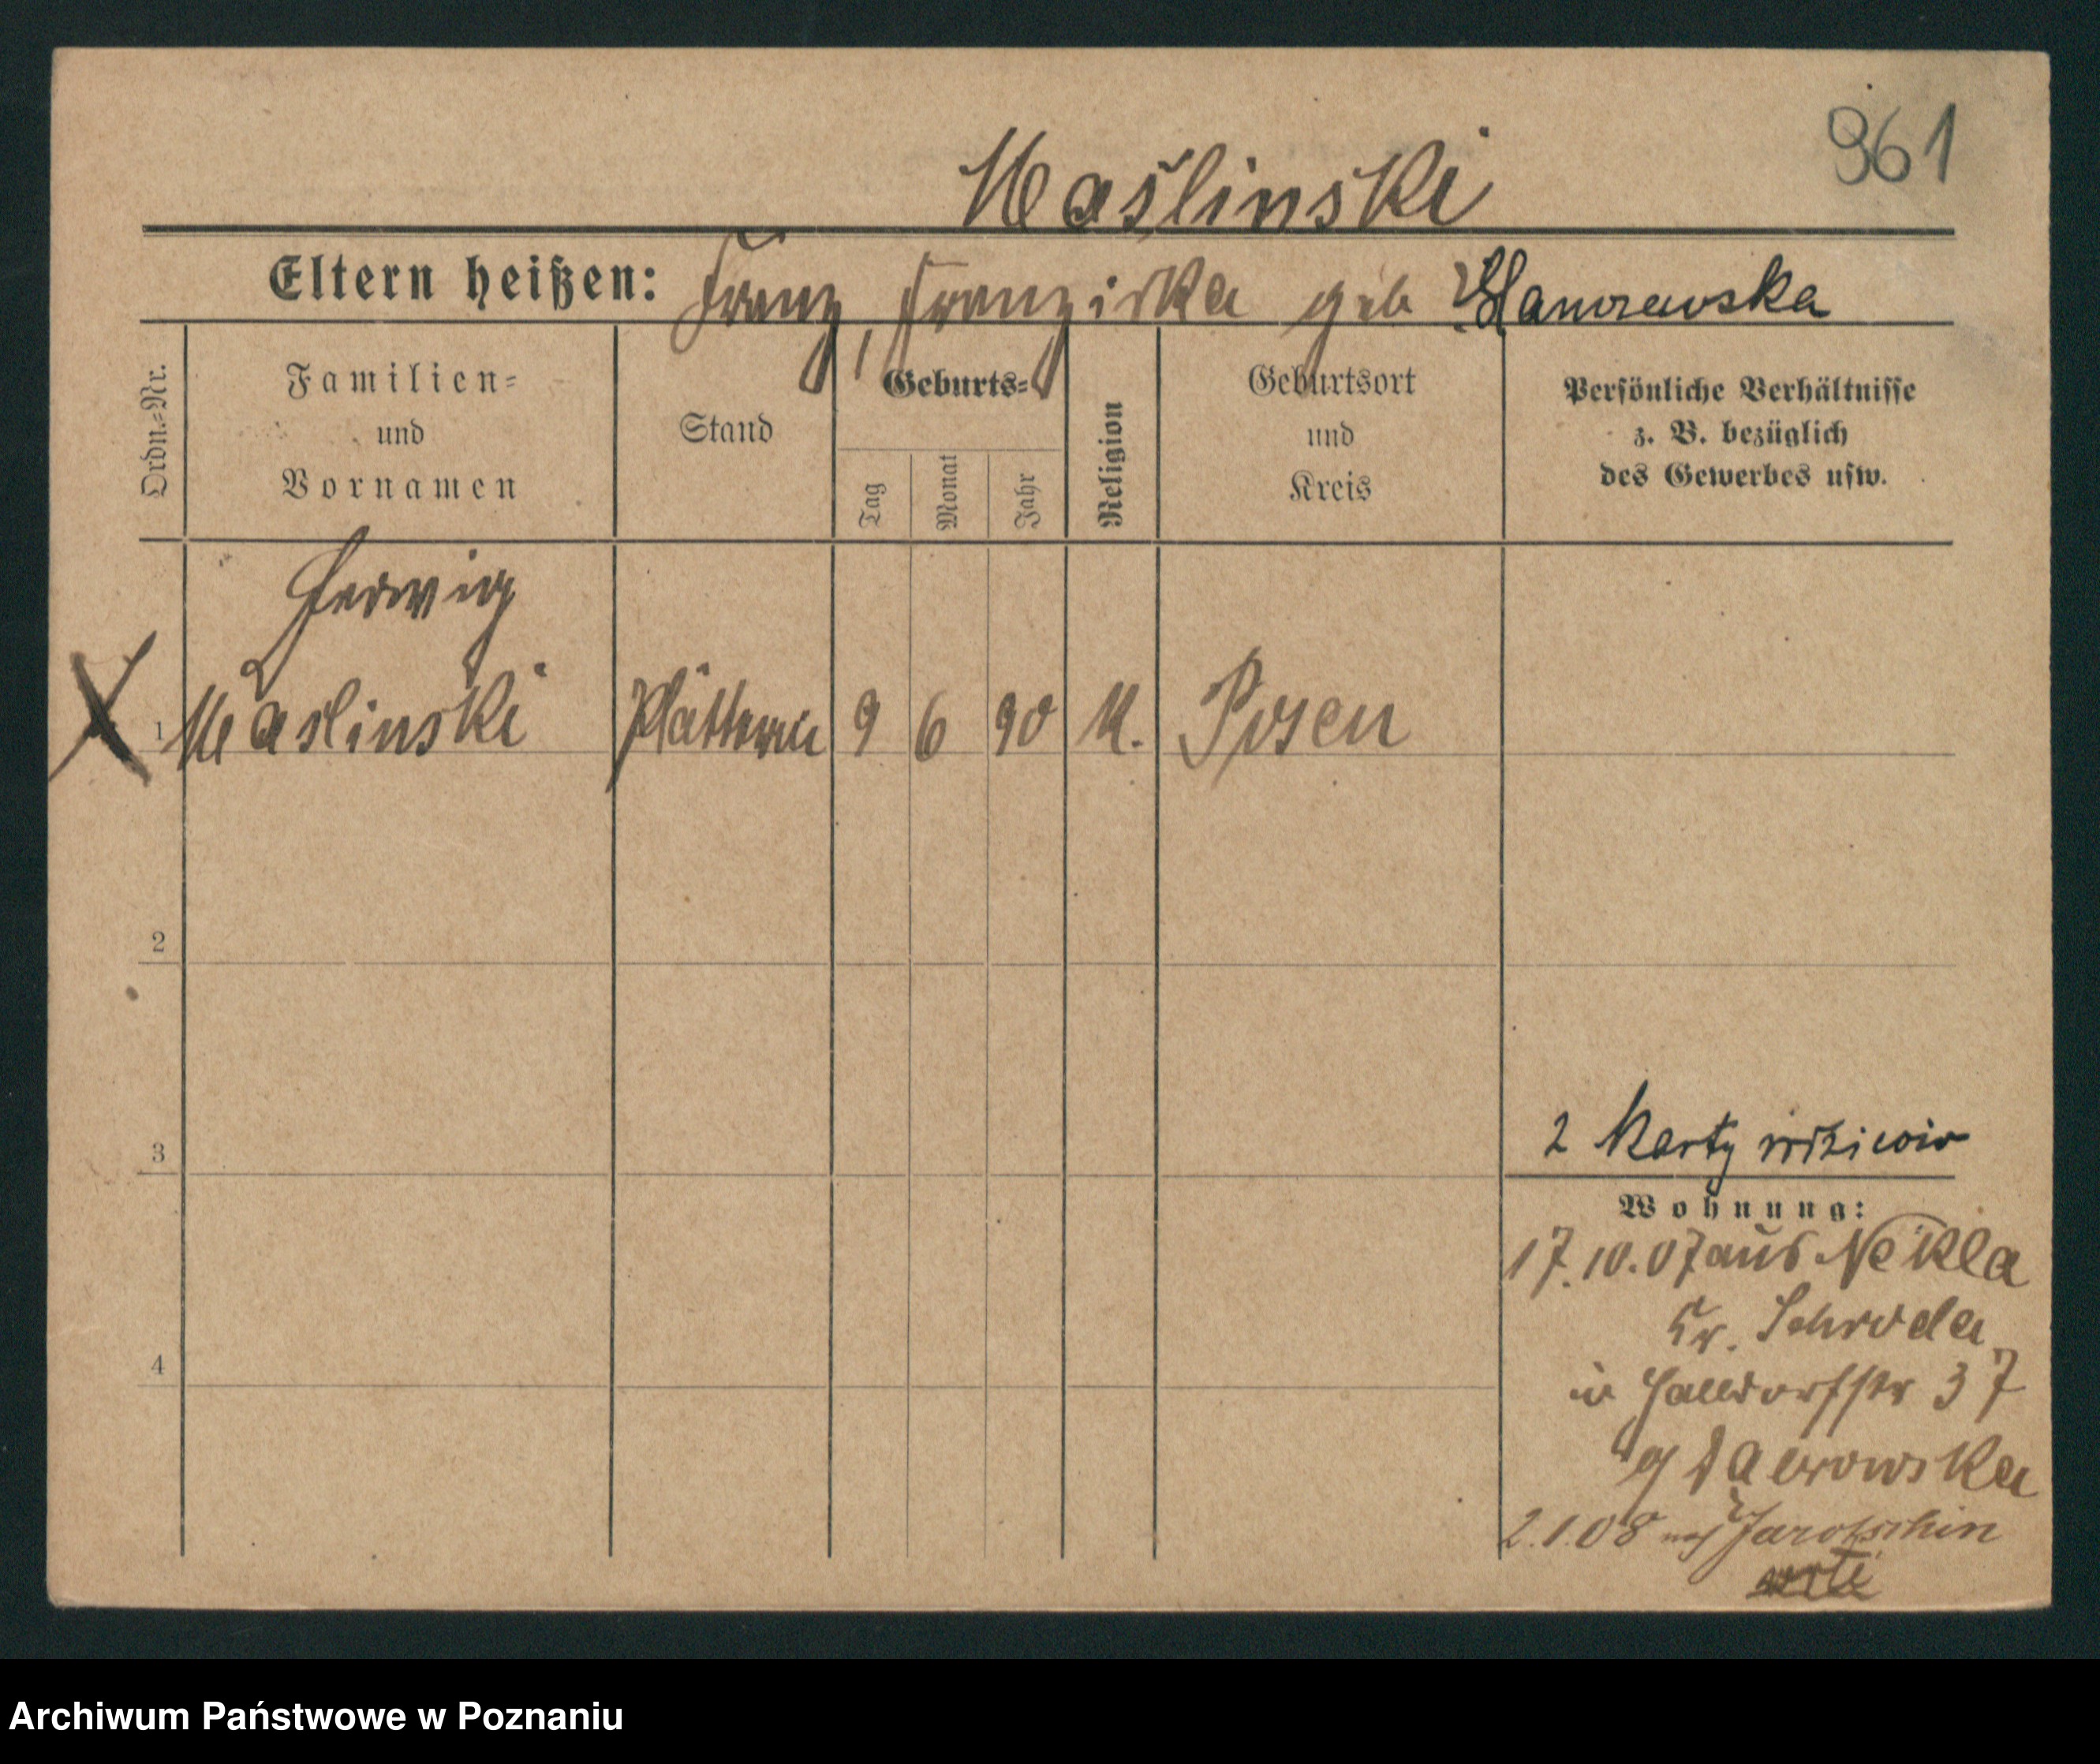 961
Maślinski
Eltern heißen: Franz, Franziska geb
Ordn.-Nr.
Familien-
und
Vornamen
Stand
Geburts-
Tag
Monat
Jahr
Religion
Geburtsort
und
Kreis
Persönliche Verhältnisse
z. B. bezüglich
des Gewerbes usw.
Hedwig
1 Maslinski Plätterin 9 6 90 K. Posen
2
3
2 Karty
4
Wohnung:
17.10.07 aus Nekla
Kr. Schroda
in 37
2.1.08 nach Jarotschin
Archiwum Państwowe w Poznaniu